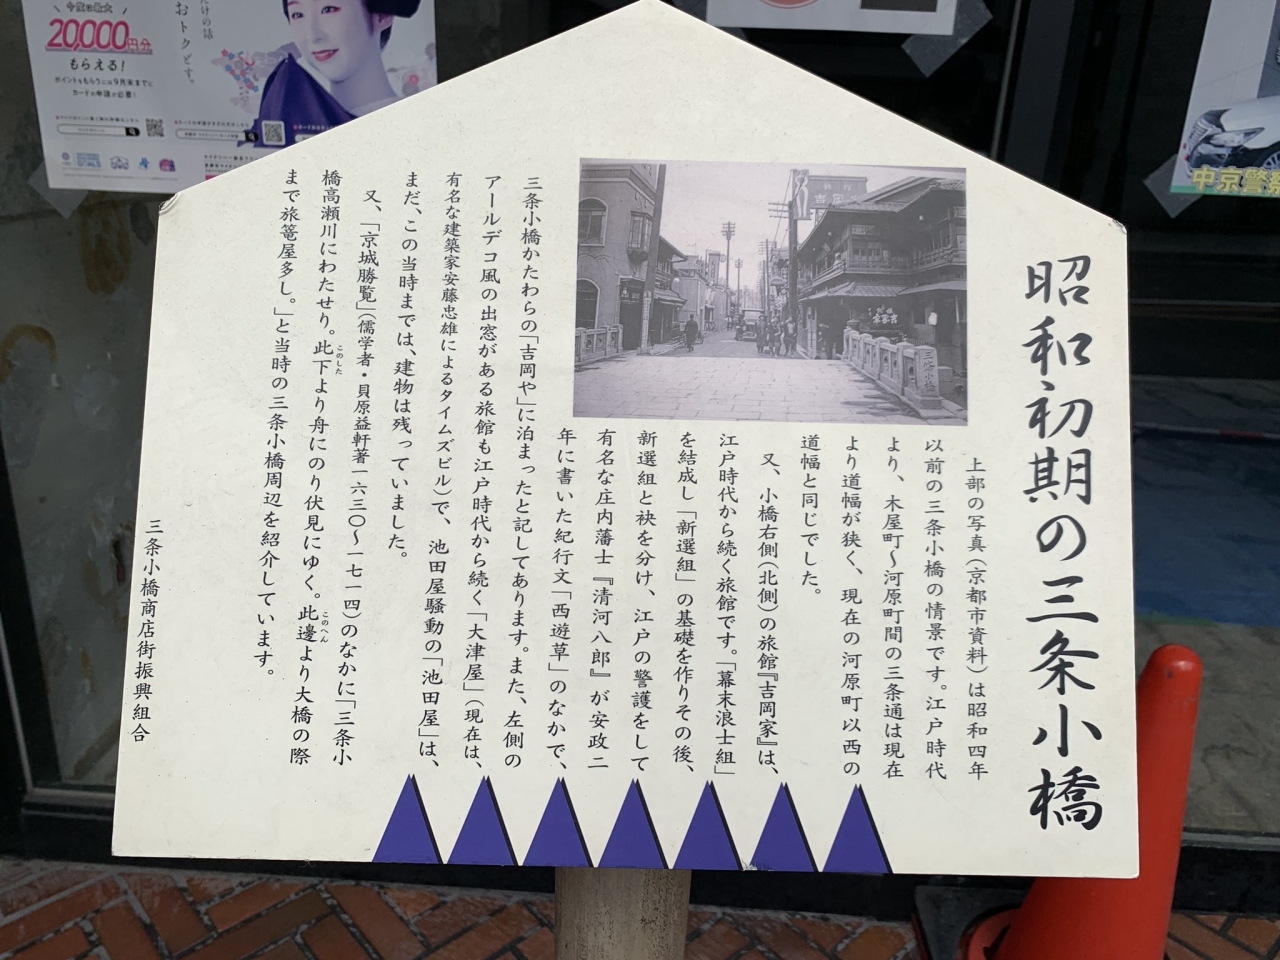 昭和初期の三条小橋
上部の写真(京都市資料)は昭和四年
以前の三条小橋の情景です。江戸時代
より、木屋町〜河原町間の三条通は現在
より道幅が狭く、現在の河原町以西の
道幅と同じでした。
又、小橋右側(北側)の旅館『吉岡家』は、
江戸時代から続く旅館です。「幕末浪士組」
を結成し「新選組」の基礎を作りその後、
新選組と袂を分け、江戸の警護をして
有名な庄内藩士『清河八郎』が安政二
年に書いた紀行文「西遊草」のなかで、
三条小橋かたわらの「吉岡や」に泊まったと記してあります。また、左側の
アールデコ風の出窓がある旅館も江戸時代から続く「大津屋」(現在は、
有名な建築家安藤忠雄によるタイムズビル)で、池田屋騒動の「池田屋」は、
まだ、この当時までは、建物は残っていました。
又、「京城勝覧」(儒学者・貝原益軒著一六三〇〜一七一四)のなかに「三条小
橋高瀬川にわたせり。此下より舟にのり伏見にゆく。此邊より大橋の際
このした
このへん
まで旅篭屋多し。」と当時の三条小橋周辺を紹介しています。
三条小橋商店街振興組合
三條小橋
今度は最大
20,000円分
もらえる!
ポイントをもらうには9月末までに
カードの申請が必要!
だけの話
おトクどす。
中京警察